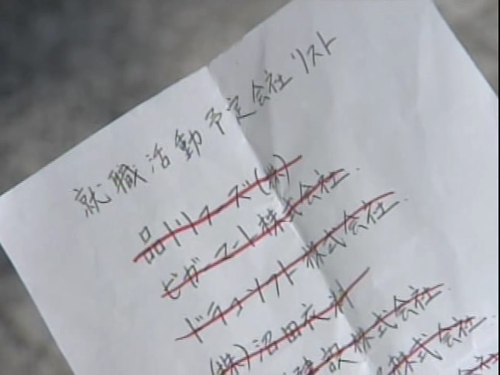 就職活動予定会社リスト
品川フーズ(株)
ビガーマート株式会社
ドラコソフト株式会社
(株)沼田衣料
建設株式会社
株式会社